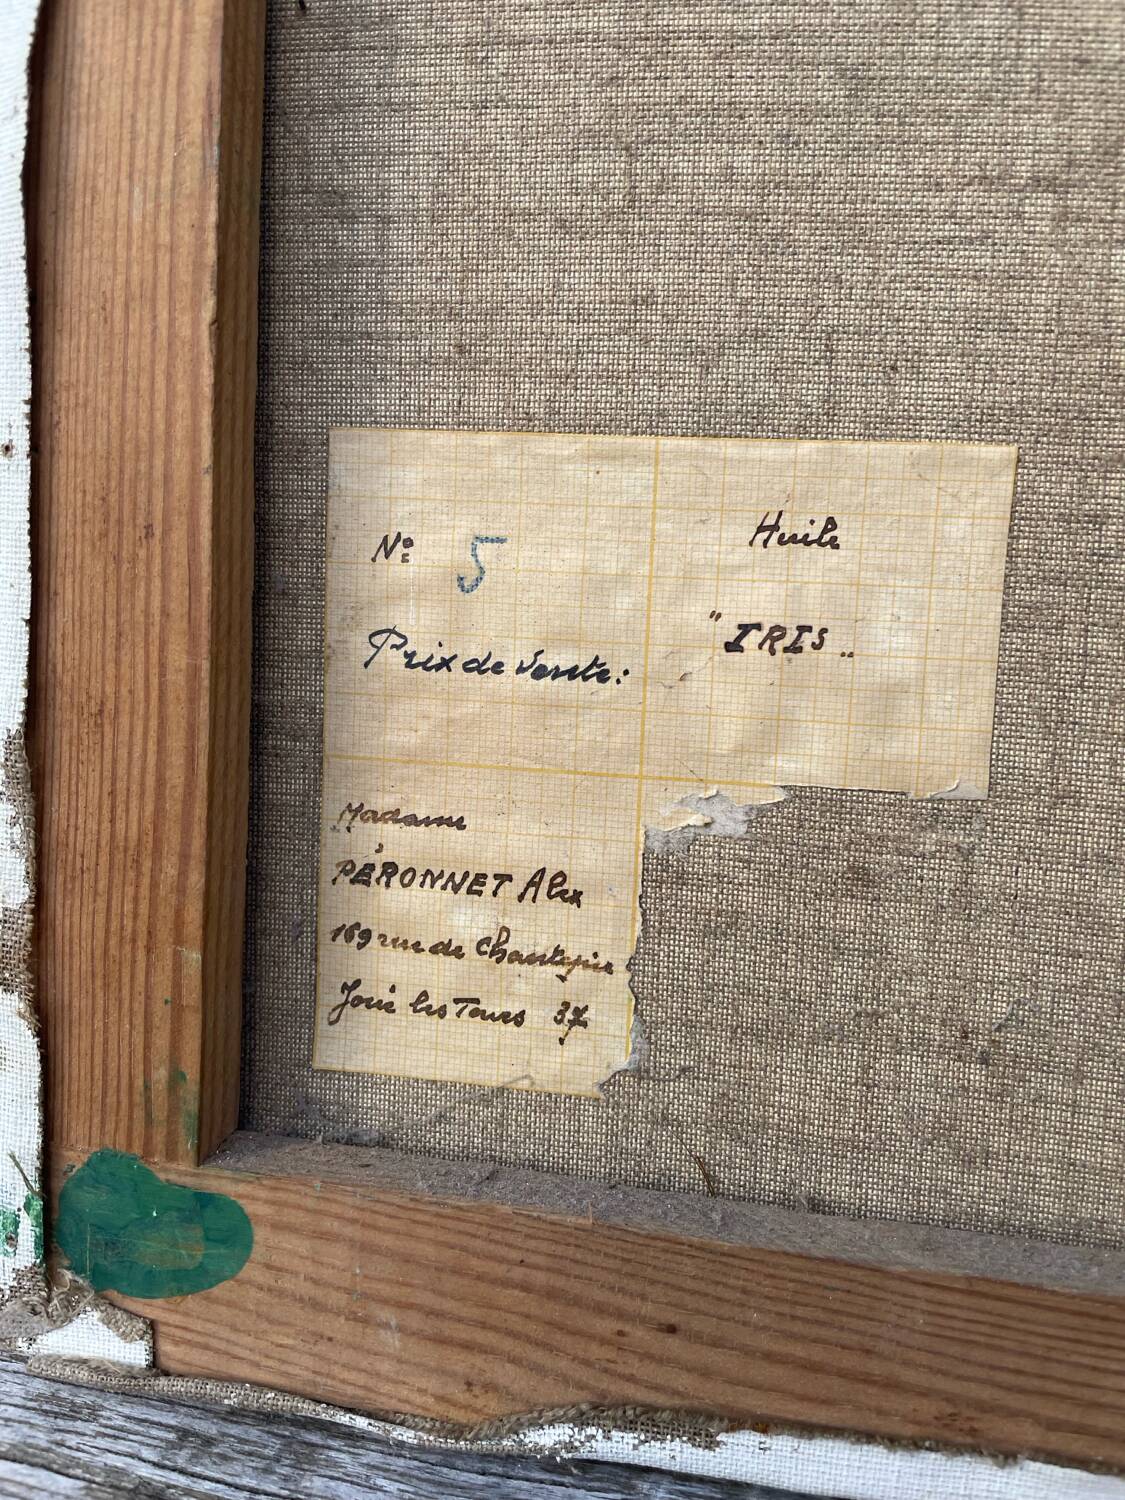 N° 5
Prix de Vente:
Huile
"IRIS"
Madame
PÉRONNET Alex
169 rue de Chantepie
Joué les Tours 37